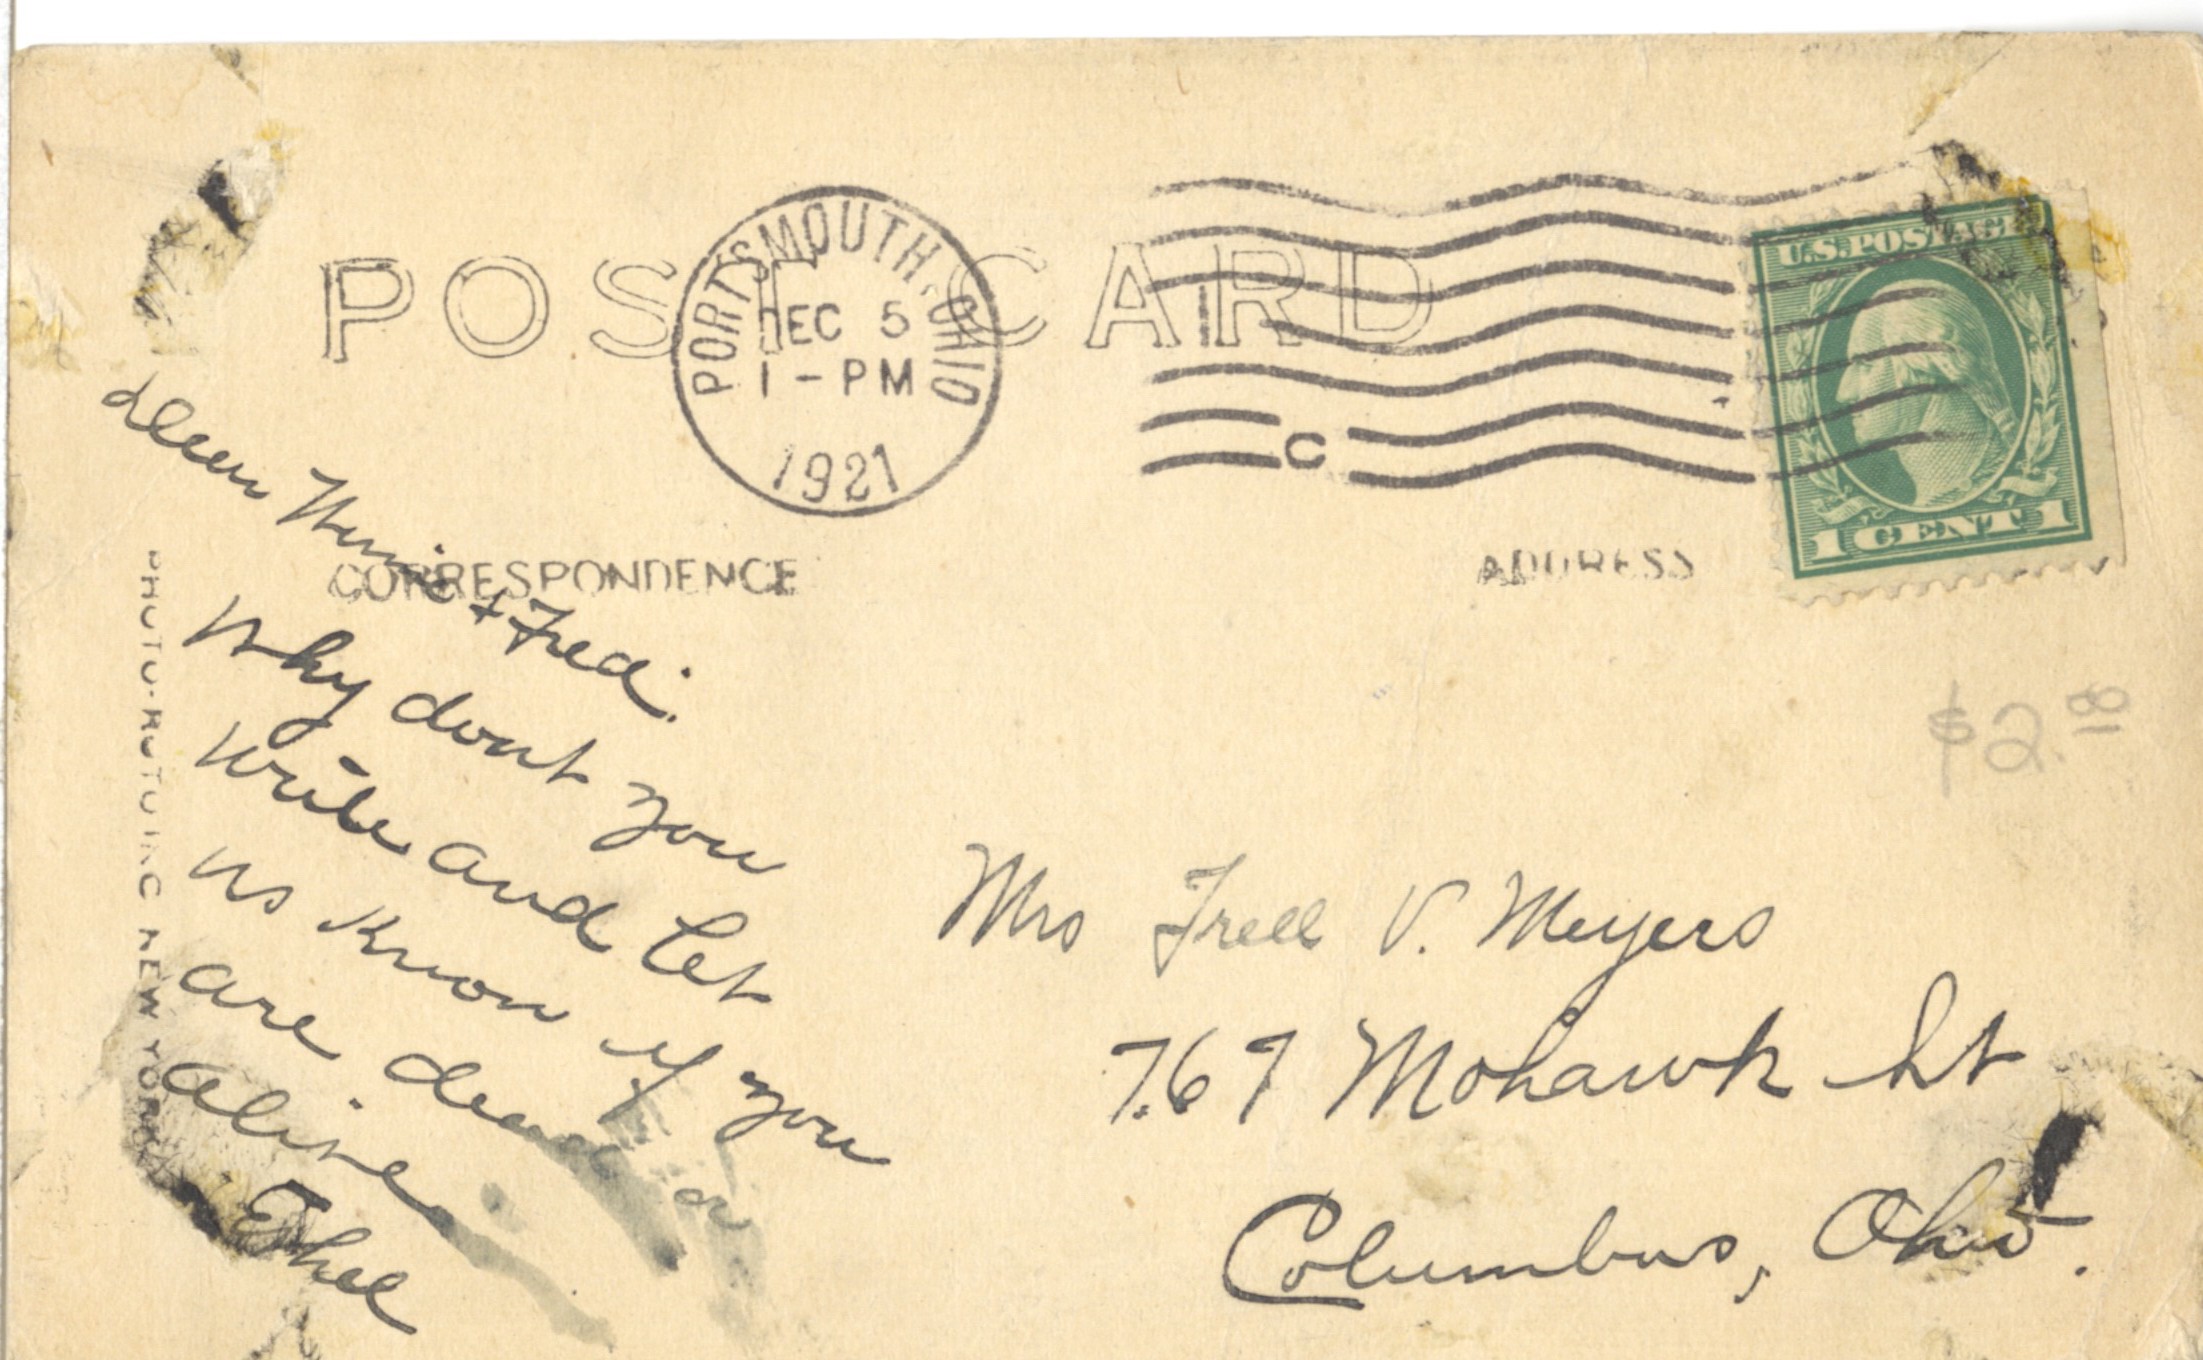 POST CARD
PORTSMOUTH, OHIO
DEC 5
1-PM
1921
C
U.S.POSTAGE
1 CENT 1
CORRESPONDENCE
ADDRESS
PHOTO-ROTO INC NEW YORK
$2.00
Dear & Fred:
Why dont you
write and let
us know if you
are dead or
alive
Ethel
Mrs Fred V. Meyers
767 Mohawk St
Columbus, Ohio.